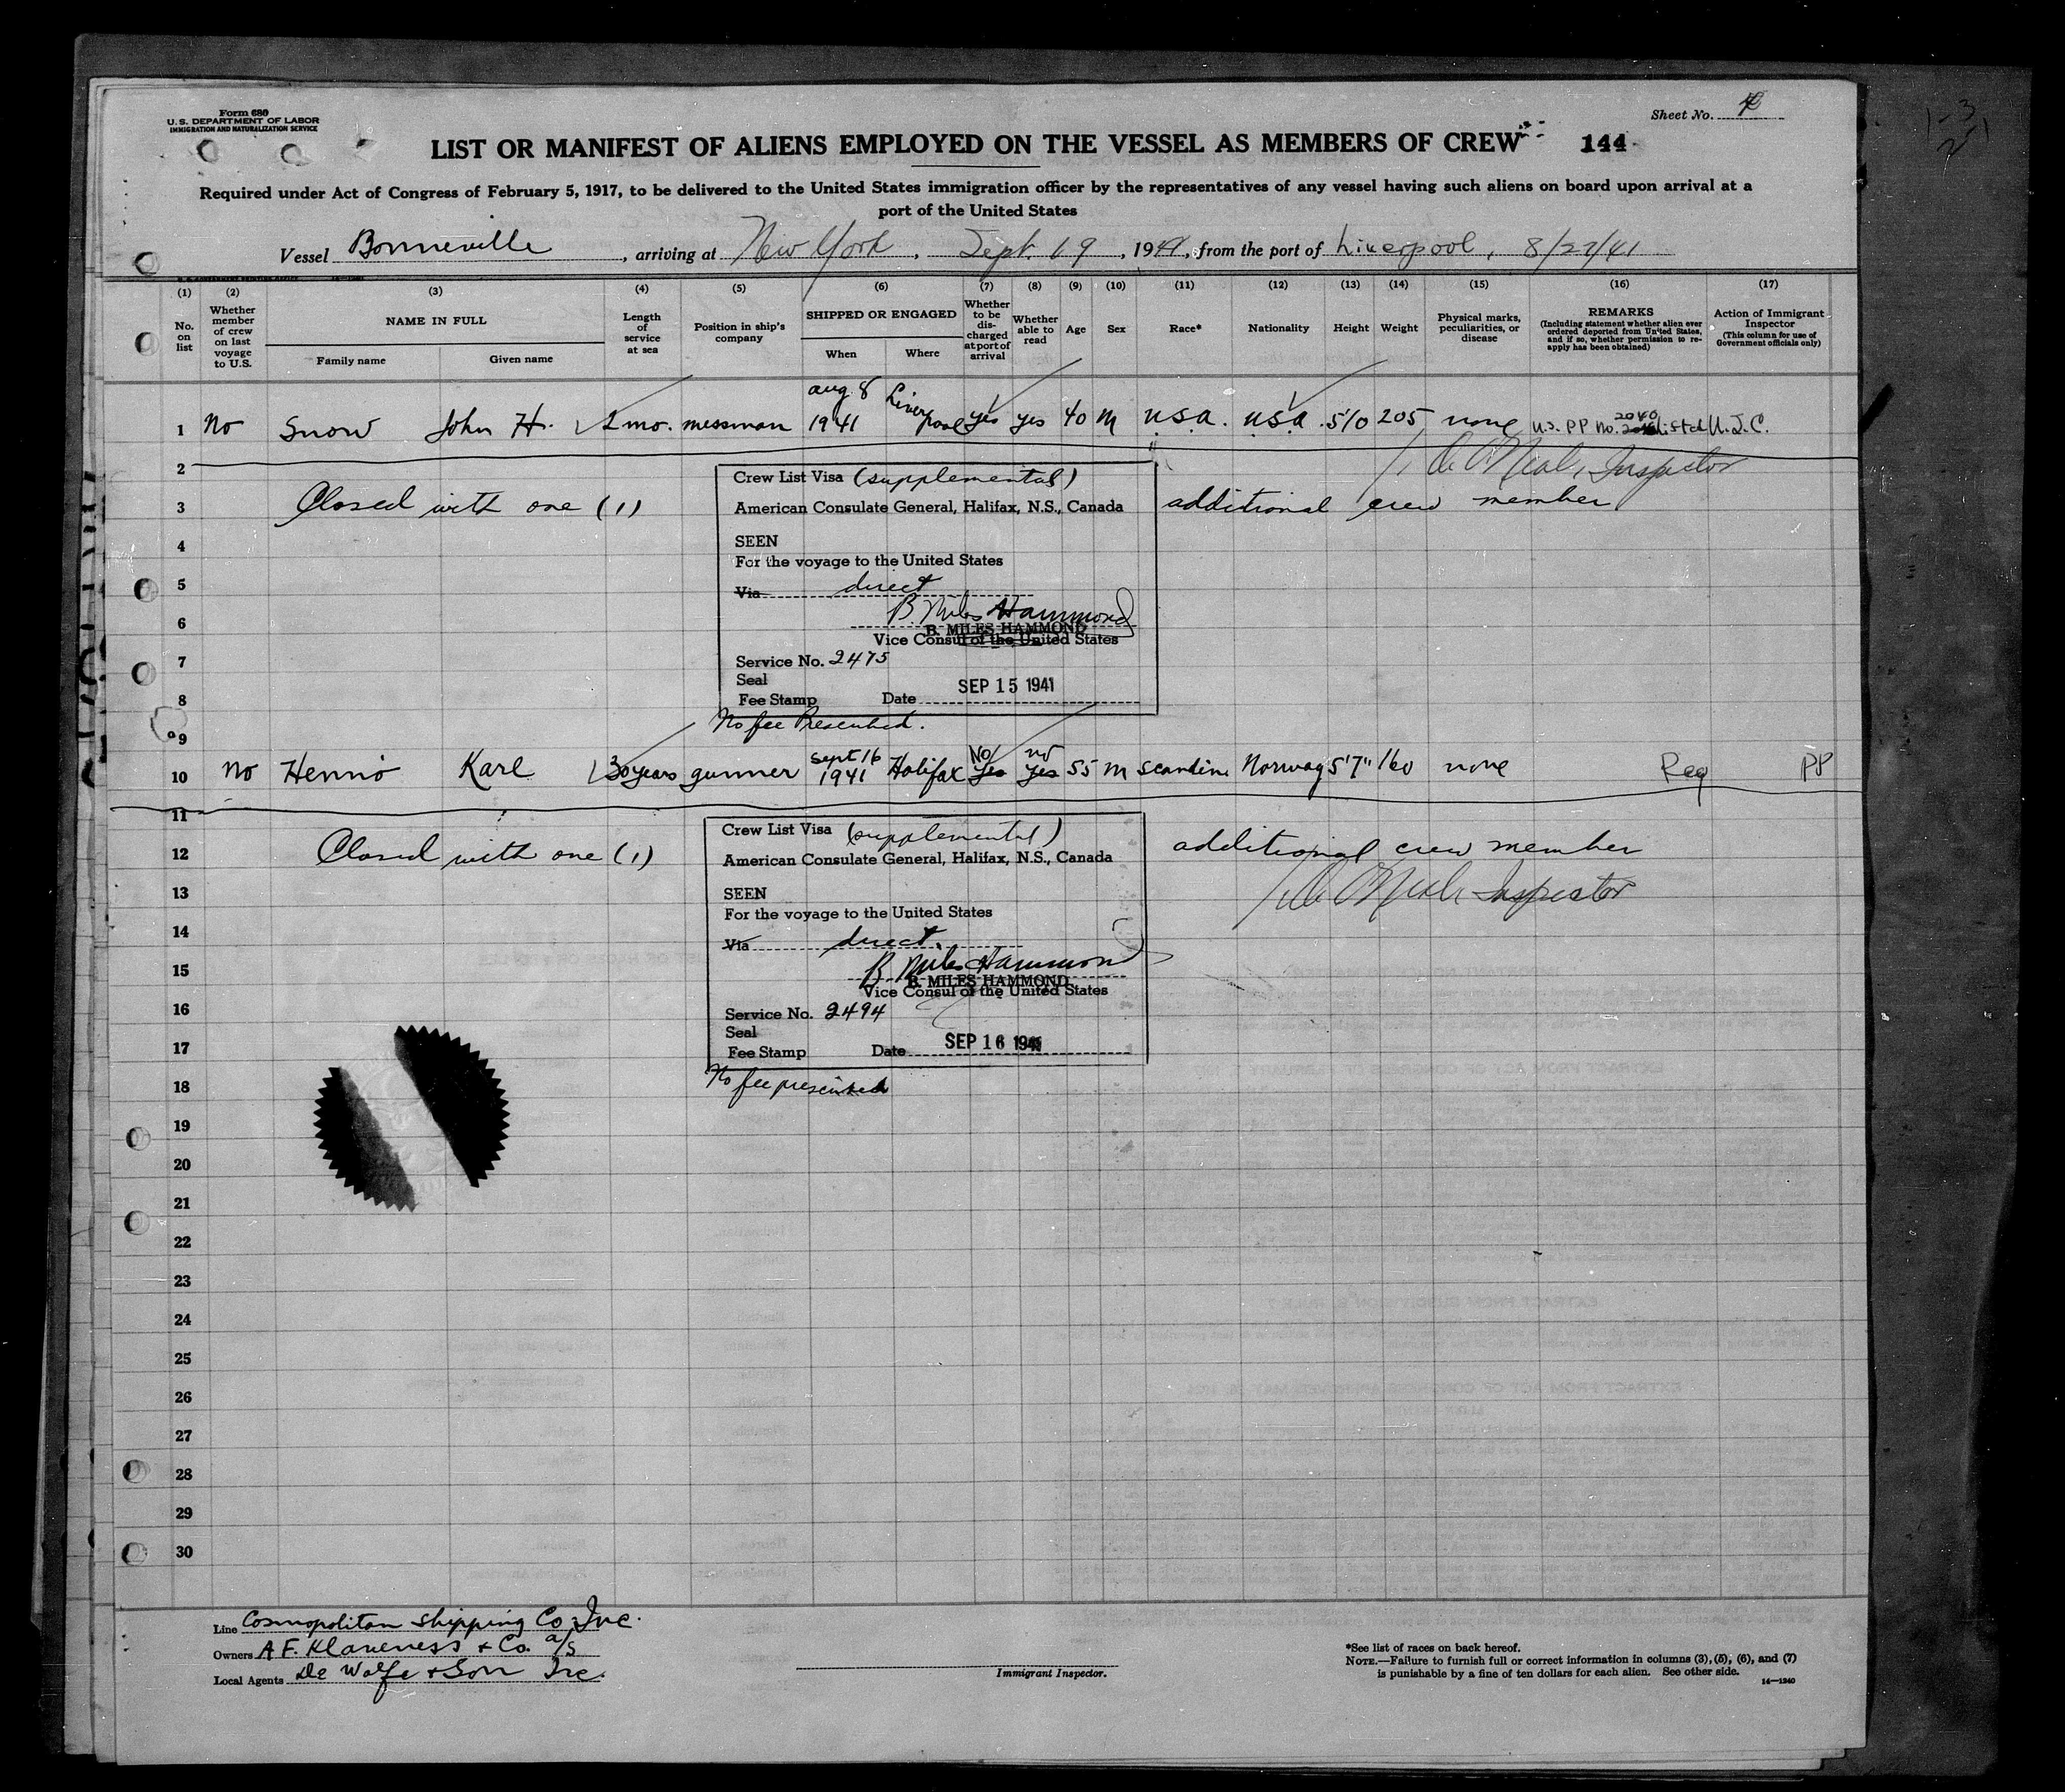 Form 680
U.S. DEPARTMENT OF LABOR
IMMIGRATION AND NATURALIZATION SERVICE
Sheet No.
LIST OR MANIFEST OF ALIENS EMPLOYED ON THE VESSEL AS MEMBERS OF CREW 144
Required under Act of Congress of February 5, 1917, to be delivered to the United States immigration officer by the representatives of any vessel having such aliens on board upon arrival at a
port of the United States
Vessel Bonneville, arriving at New York, Sept. 19, 1941, from the port of Liverpool, 8/27/41
(1) (2) (3) (4) (5) (6) (7) (8) (9) (10) (11) (12) (13) (14) (15) (16) (17)
No. on list
Whether member of crew on last voyage to U.S.
NAME IN FULL
Family name Given name
Length of service at sea
Position in ship's company
SHIPPED OR ENGAGED
When Where
Whether to be discharged at port of arrival
Whether able to read
Age
Sex
Race*
Nationality
Height
Weight
Physical marks, peculiarities, or disease
REMARKS
(Including statement whether alien ever ordered deported from United States, and if so, whether permission to reapply has been obtained)
Action of Immigrant Inspector
(This column for use of Government officials only)
1 No Snow John H. 2 mo. messman Aug 8 1941 Liverpool yes yes 40 M U.S.A. U.S.A. 5/0 205 none U.S. PP No. 2040
2 Inspector
3 Closed with one (1) additional crew member
Crew List Visa (supplemental)
American Consulate General, Halifax, N.S., Canada
4 SEEN
For the voyage to the United States
5 Via direct
6 B. Miles Hammond
B. MILES HAMMOND
Vice Consul of the United States
7 Service No. 2475
Seal
8 Fee Stamp Date SEP 15 1941
9 No fee Prescribed.
10 no Henno Karl 30 years gunner Sept 16 1941 Halifax No yes no yes 55 M Scandin. Norway 5'7" 160 none Reg PP
11 Crew List Visa (supplemental)
12 Closed with one (1) additional crew member
American Consulate General, Halifax, N.S., Canada
13 SEEN Inspector
For the voyage to the United States
14 Via direct.
15 B Miles Hammond
B. MILES HAMMOND
Vice Consul of the United States
16 Service No. 2494
Seal
17 Fee Stamp Date SEP 16 1941
18 No fee prescribed
19
20
21
22
23
24
25
26
27
28
29
30
Line Cosmopolitan Shipping Co. Inc.
Owners A F. Klaveness & Co. a/s
Local Agents De Wolfe & Son Inc.
Immigrant Inspector.
*See list of races on back hereof.
NOTE.—Failure to furnish full or correct information in columns (3), (5), (6), and (7)
is punishable by a fine of ten dollars for each alien. See other side.
14—1240